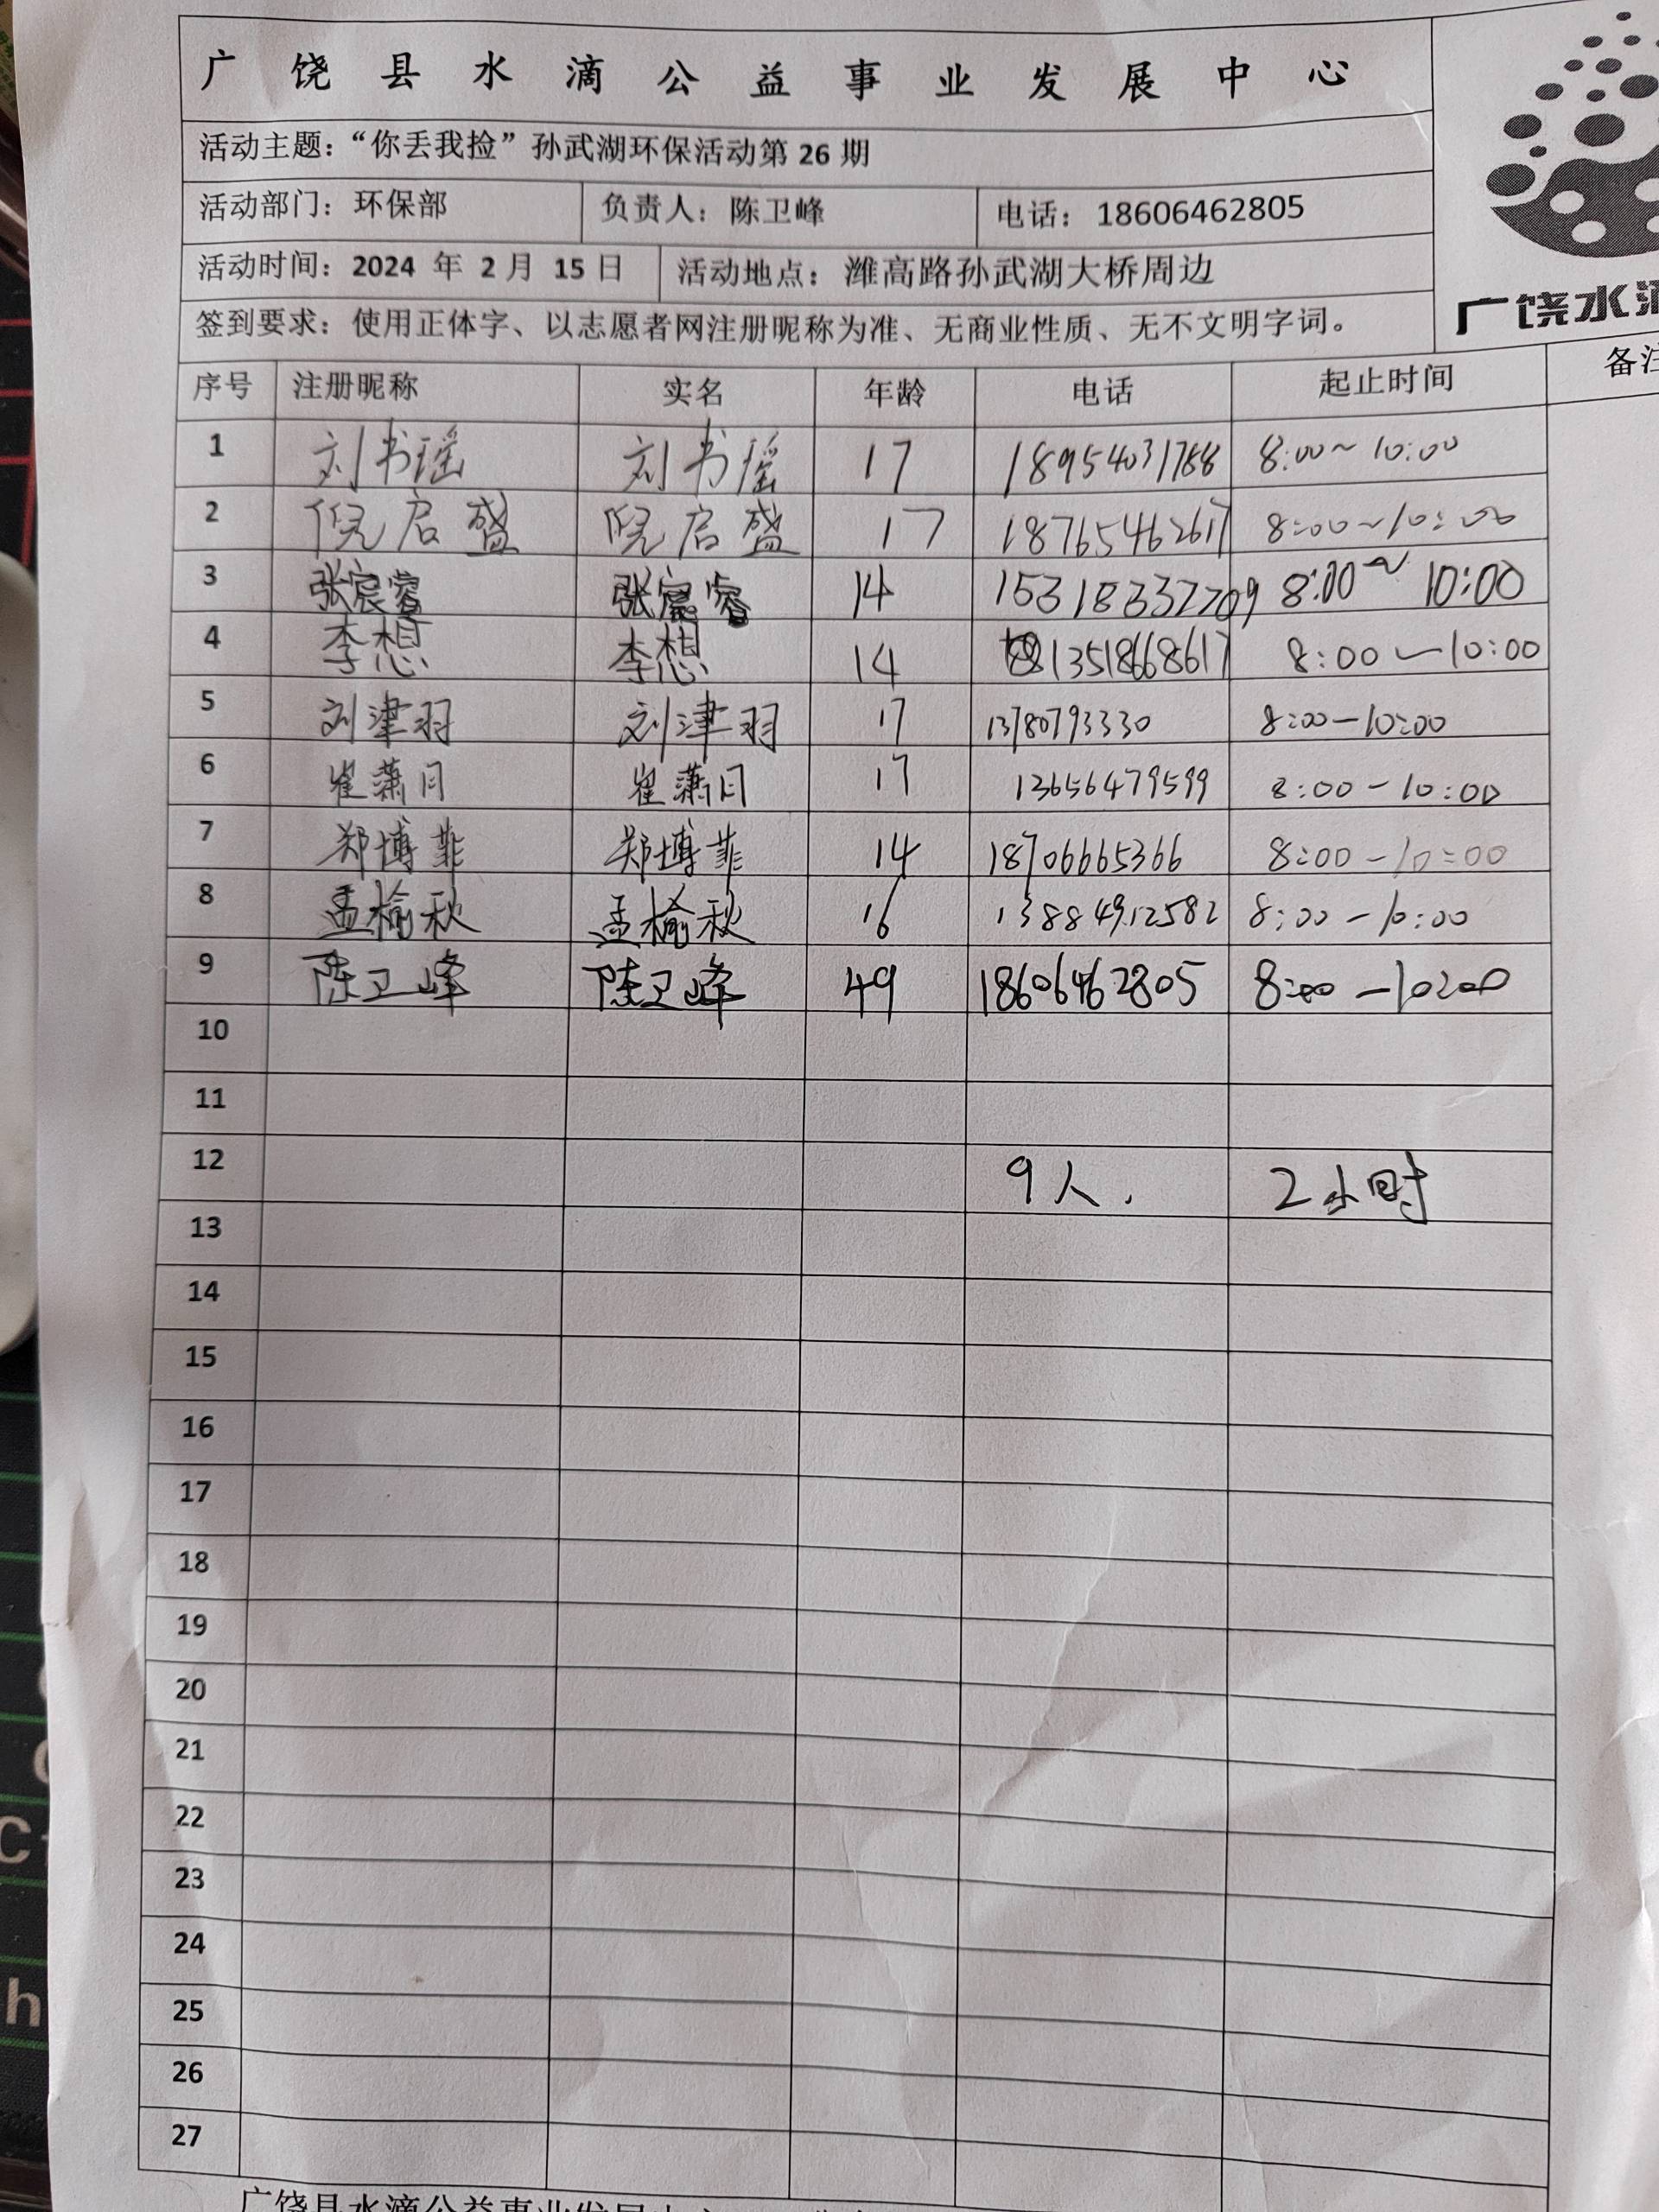 广饶县水滴公益事业发展中心
活动主题：“你丢我捡”孙武湖环保活动第 26 期
活动部门：环保部 负责人：陈卫峰 电话：18606462805
活动时间：2024 年 2 月 15 日 活动地点：潍高路孙武湖大桥周边
签到要求：使用正体字、以志愿者网注册昵称为准、无商业性质、无不文明字词。
广饶水滴
序号 注册昵称 实名 年龄 电话 起止时间 备注
1 刘书瑶 刘书瑶 17 18954031788 8:00~10:00
2 倪启盛 倪启盛 17 18765462617 8:00~10:00
3 张宸睿 张宸睿 14 15318332709 8:00~10:00
4 李想 李想 14 13518668617 8:00—10:00
5 刘津羽 刘津羽 17 13780793330 8:00—10:00
6 崔潇月 崔潇月 17 13656479599 8:00—10:00
7 郑博菲 郑博菲 14 18706665366 8:00—10:00
8 孟榆秋 孟榆秋 16 13884912582 8:00—10:00
9 陈卫峰 陈卫峰 49 18606462805 8:00—10:00
10
11
12 9人. 2小时
13
14
15
16
17
18
19
20
21
22
23
24
25
26
27
广饶县水滴公益事业发展中心